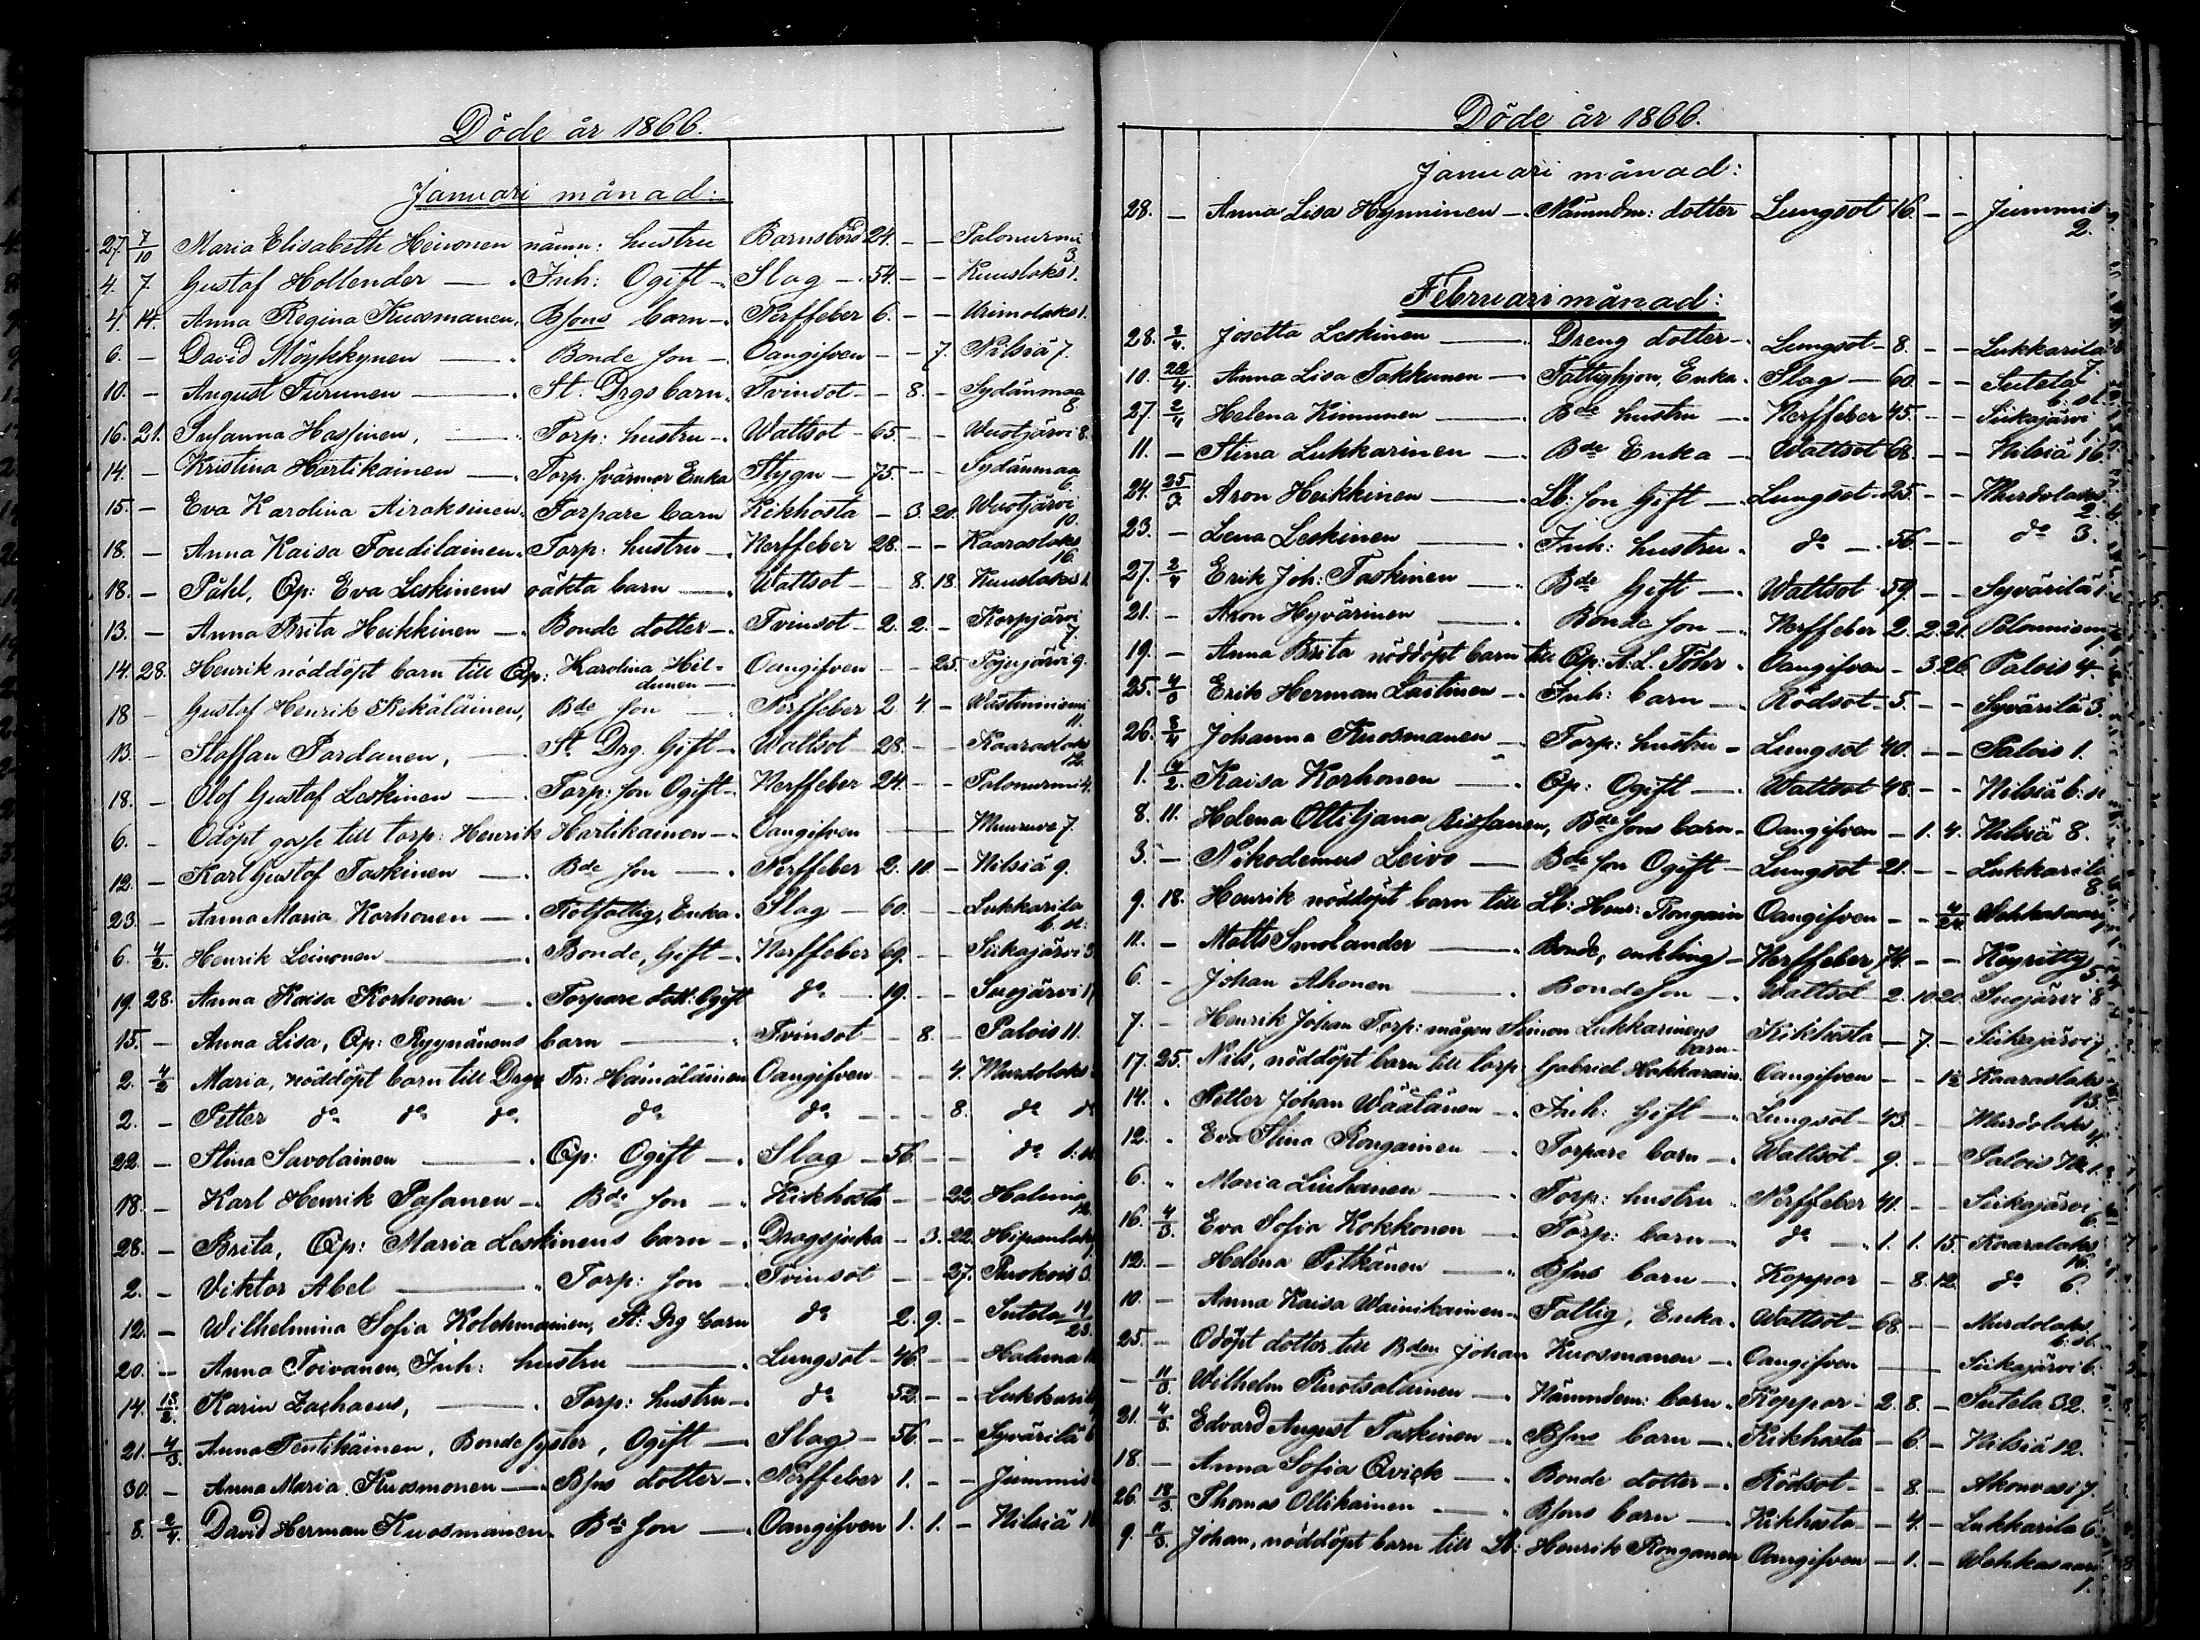 Döde år 1866.
Januari månad:
27. 7/10 Maria Elisabeth Heinonen nämn: hustru Barnsbörd 24. — — Palonurmi 3.
4. 7. Gustaf Hollender — Inh: Ogift — Slag — 54. — — Kuuslaks 1.
4. 14. Anna Regina Kuosmanen, Bsons barn — Nerffeber 6. — — Urimolaks 1.
6. — David Möykkynen — Bonde son — Oangifven — — 7. Nilsiä 7.
10. — August Turunen — St. Drgs barn. Tvinsot — — 8. — Sydänmaa 8.
16. 21. Susanna Hassinen, — Torp: hustru — Wattsot — 65. — — Wuotjärvi 8.
14. — Kristina Hartikainen — Torp. svärmor Enka Stygn — 75. — — Sydänmaa 6.
15. — Eva Karolina Airaksinen. Torpare barn Kikhosta — 3. 20. Wuotjärvi 10.
18. — Anna Kaisa Toudilainen. Torp: hustru — Nerffeber 28. — — Kaaraslaks 16.
18. — Påhl, Qp: Eva Leskinens oäkta barn — Wattsot — — 8. 13. Kuuslaks 1.
13. — Anna Brita Heikkinen — Bonde dotter — Tvinsot — 2. 2. — Korpjärvi 7.
14. 28. Henrik nöddöpt barn till Qp: Karolina Hil-
dunen — Oangifven — — 25. 9.
18 — Gustaf Henrik Kekäläinen, Bde son — Nerffeber 2. 4. — Wästinniemi 11.
13. — Staffan Pardanen, — St. Drg. Gift — Wattsot — 28. — — Kaaraslaks 12.
18. — Olof Gustaf Leskinen — Torp: son Ogift — Nerffeber 24. — — Palonurmi 4.
6. — Odöpt gosse till torp: Henrik Hartikainen — Oangifven — Muuruve 7.
12. — Karl Gustaf Taskinen — Bde son — Nerffeber 2. 10. — Nilsiä 9.
23 — Anna Maria Korhonen — Enka. Slag — 60. — — Lukkarila 6. st:
6. 4/2. Henrik Leinonen — Bonde, Gift — Nerffeber 69. — — Siikajärvi 3.
19. 28. Anna Kaisa Korhonen — Torpare dott: Ogift do — 19. — — Suojärvi 17
15. — Anna Lisa, Qp: Ryynänens barn — Tvinsot — — 8. — Palois 11.
2. 4/2 Maria, nöddöpt barn till Drgn Hämäläinen Oangifven — — 4. Murdolaks
2. — Petter do do do do do — — — 8. do do
22. — Stina Savolainen — Qp: Ogift — Slag — 56. — — do 1: st
18. — Karl Henrik Pasanen — Bde son — Kikhosta — — 22. Haluna 12.
28. — Brita, Qp: Maria Leskinens barn — Dragsjuka — 3. 22. 1.
2. — Viktor Abel — Torp: son — Tvinsot — — 27. 3.
12. — Wilhelmina Sofia Kolehmainen, St: Drg barn do 2. 9. — Sutela 19/23.
20. — Anna Toivanen, Inh: hustru — Lungsot — 46. — — Haluna
14. 18/2. Karin Zachaeus, — Torp: hustru — do 52. — — Lukkarila
21. 4/3 Anna Pentikäinen, Bonde syster, Ogift — Slag — 56. — — Syvärilä 6
30. — Anna Maria Kuosmonen — Bsns dotter — Nerffeber 1. — — Jummis
8. 2/4. David Herman Kuosmanen. Bde son — Oangifven 1. 1. — Nilsiä
Döde år 1866.
Januari månad:
28. — Anna Lisa Hynninen — Nämndm: dotter Lungsot 16. — — Jummis 2.
Februari månad:
28. 2/4. Josetta Leskinen — Dreng dotter — Lungsot — 8. — — Lukkarila 7.
10. 22/4. Anna Lisa Tokkunen — Fattighjon, Enka. Slag — 60. — — Sutela 6: st.
27. 2/4 Helena Kinnunen — Bde hustru — Nerffeber 45. — — Siikajärvi 1.
11. — Stina Lukkarinen — Bde Enka — Wattsot 68. — — Nilsiä 16.
24. 25/3. Aron Heikkinen — Lb: son Gift — Lungsot — 25. — — Murdolaks 2.
23. — Lena Leskinen — Inh: hustru. do — 56. — — do 3.
27. 2/4 Erik Joh: Taskinen — Bde Gift — Wattsot 59. — — Syvärilä 1.
21. — Aron Hyvärinen — Bonde son — Nerffeber 2. 2. 21. Pelonniemi
19. — Anna Brita nöddöpt barn till Qp: A. L. Töhr. Oangifven — 3. 26. Palois 4.
25. 4/3 Erik Herman Lastinen — Inh: barn — Rödsot — 5. — — Syvärilä 3.
26. 8/4 Johanna Kuosmanen — Torp: hustru — Lungsot 40. — — Palois 1.
1. 4/2. Kaisa Korhonen — Qp: Ogift — Wattsot 48. — — Nilsiä 6: st
8. 11. Helena Ottiljana Rissanen, Bde sons barn — Oangifven — 1. 4. Nilsiä 8.
3. — Nikodemus Leivo — Bde son Ogift — Lungsot 21. — — Lukkarila 8.
9. 18. Henrik nöddöpt barn till Lb: Henr: Rongain Oangifven — — 4/24. Wehkasaari 1
11. — Matts Smolander — Bonde, enkling — Nerffeber 74. — — Keyritty 5.
6. — Johan Ahonen — Bonde son — Wattsot — 2. 10 20. Suojärvi 8
7. — Henrik Johan Torp: mågen Simon Lukkarinens
barn — Kikhosta — 7. — Siikajärvi 7
17. 25. Nils, nöddöpt barn till torp Gabriel Hokkarain. Oangifven — — 1/2 Kaaraslaks 13.
14. " Petter Johan Wäätänen — Inh: Gift — Lungsot — 43. — — Murdolaks 4.
12. " Eva Stina Rongainen — Torpare barn — Wattsot — 9. — — Palois
6. " Maria Liuhanen — Torp: hustru. Nerffeber 41. — — Siikajärvi 6.
16. 4/3. Eva Sofia Kokkonen — Torp: barn — do — 1. 1. 15. Kaaraslaks 16.
12. — Helena Pitkänen — Bsns barn — Koppor — 8. 12. do 6.
10. — Anna Kaisa Wainikainen — Fattig, Enka. Wattsot — 68. — — Murdolaks 6: st.
25. — Odöpt dotter till Bden Johan Kuosmanen — Oangifven — Siikajärvi 6.
— 11/3. Wilhelm Ruotsalainen — Nämndem: barn. Koppor — 2. 8. — Sutela 32.
21. 4/3. Edvard August Taskinen — Bsns barn — Kikhosta — 6. — Nilsiä 12.
18. — Anna Sofia Qvick — Bonde dotter — Rödsot — — 8. — Akonvesi 7.
26. 18/3. Thomas Ollikainen — Bsons barn — Kikhosta — — 4. — Lukkarila 6.
9. 11/3. Johan, nöddöpt barn till Lb: Henrik Ronganen Oangifven — 1. — Wehkasaari 1.